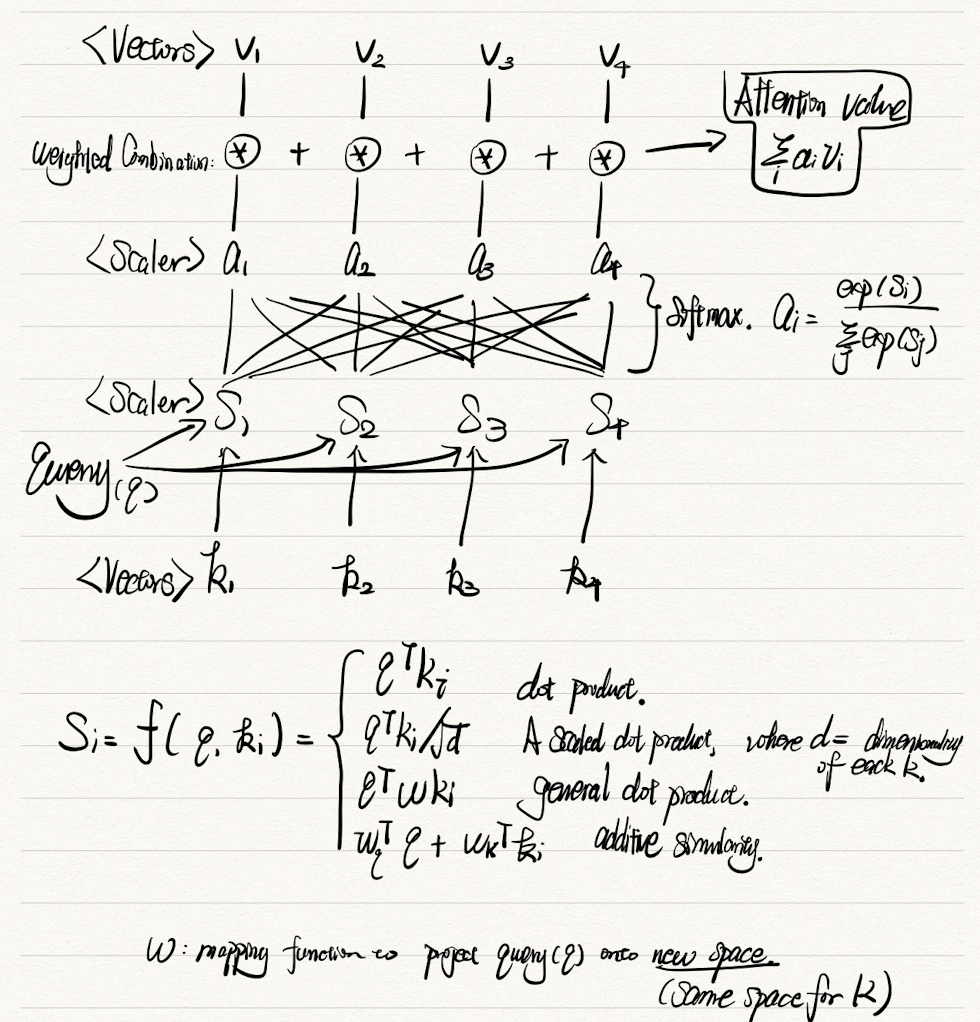 <Vectors> V₁ V₂ V₃ V₄
Attention value
Weighted Combination: * + * + * + * → Σᵢ aᵢ vᵢ
<Scaler> a₁ a₂ a₃ a₄
Softmax. aᵢ = exp(Sᵢ) / Σⱼ exp(Sⱼ)
<Scaler> S₁ S₂ S₃ S₄
Query(q)
<Vectors> k₁ k₂ k₃ k₄
Sᵢ = f(q, kᵢ) =
qᵀkᵢ dot product.
qᵀkᵢ/√d A scaled dot product, where d = dimensionality
of each k.
qᵀwkᵢ general dot product.
w_qᵀ q + w_kᵀ kᵢ additive similarity.
W: mapping function to project query(q) onto new space.
(same space for k)